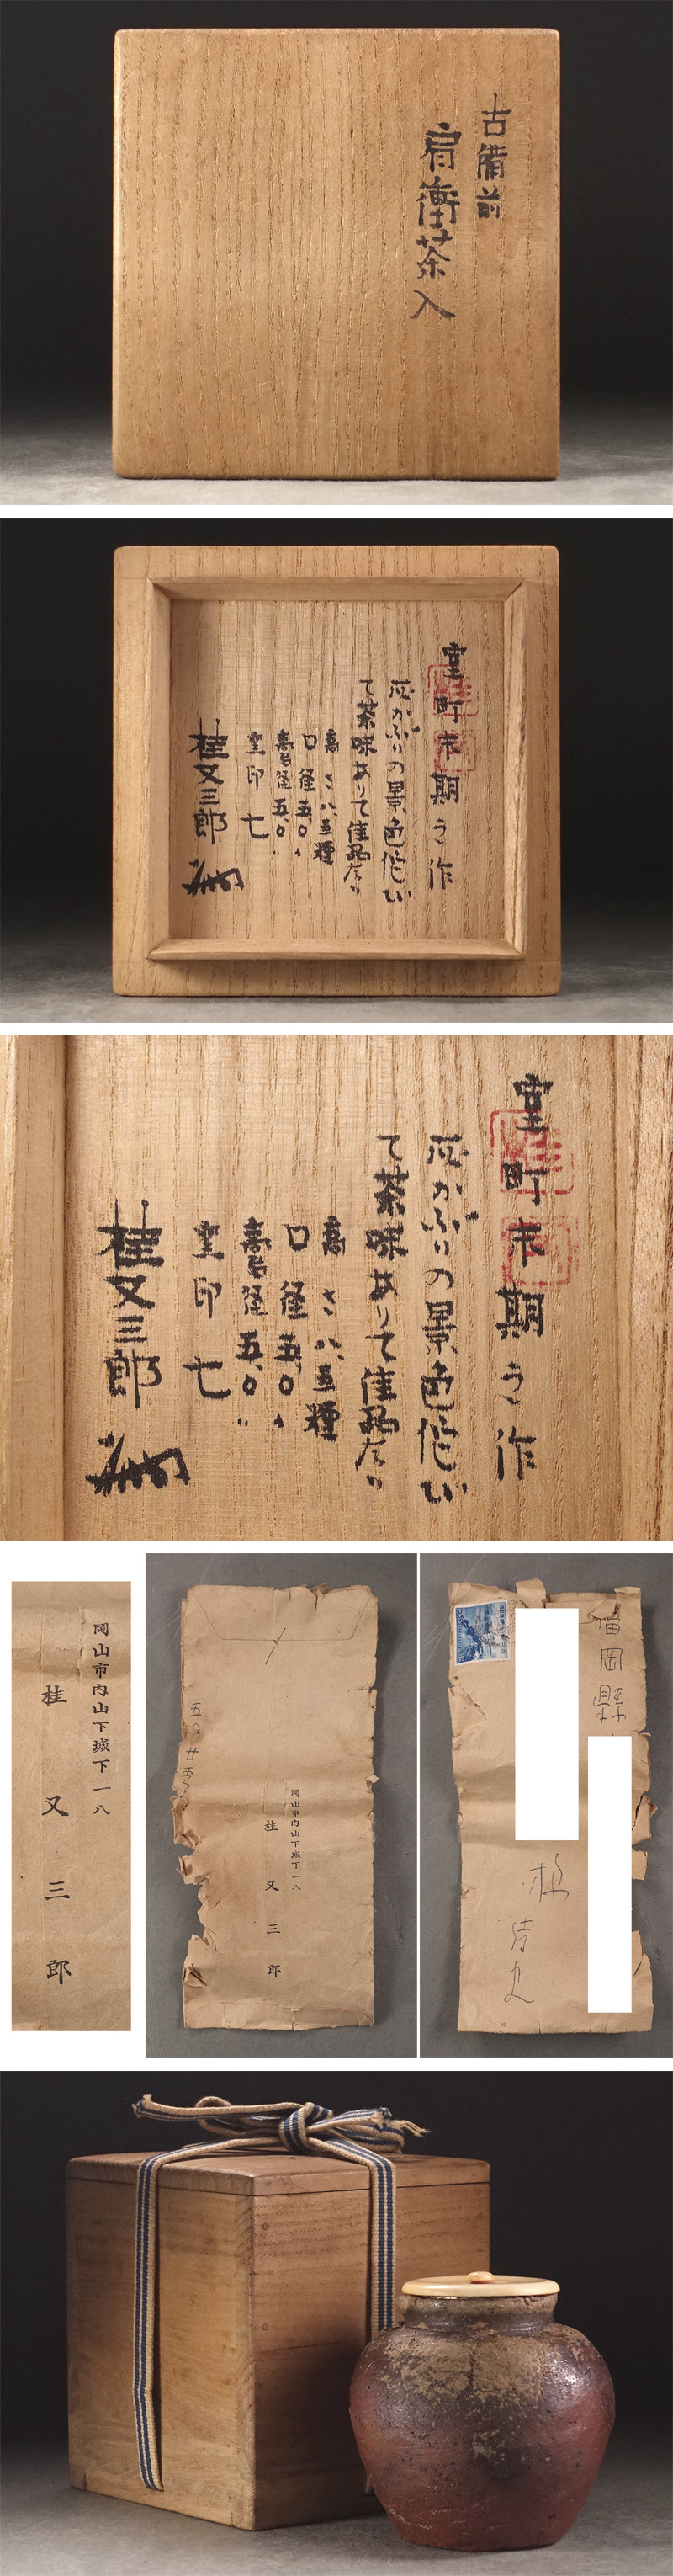 古備前
肩衝茶入
室町末期う作
灰かぶりの景色侘び
て茶味ありて佳品なり
高さ八、五糎
口径五、〇〃
高台径五、〇〃
窯印七
桂又三郎
室町末期う作
灰かぶりの景色侘び
て茶味ありて佳品なり
高さ八、五糎
口径五、〇〃
高台径五、〇〃
窯印七
桂又三郎
岡山市内山下城下一八
桂又三郎
五月廿五
岡山市内山下城下一八
桂又三郎
福岡縣